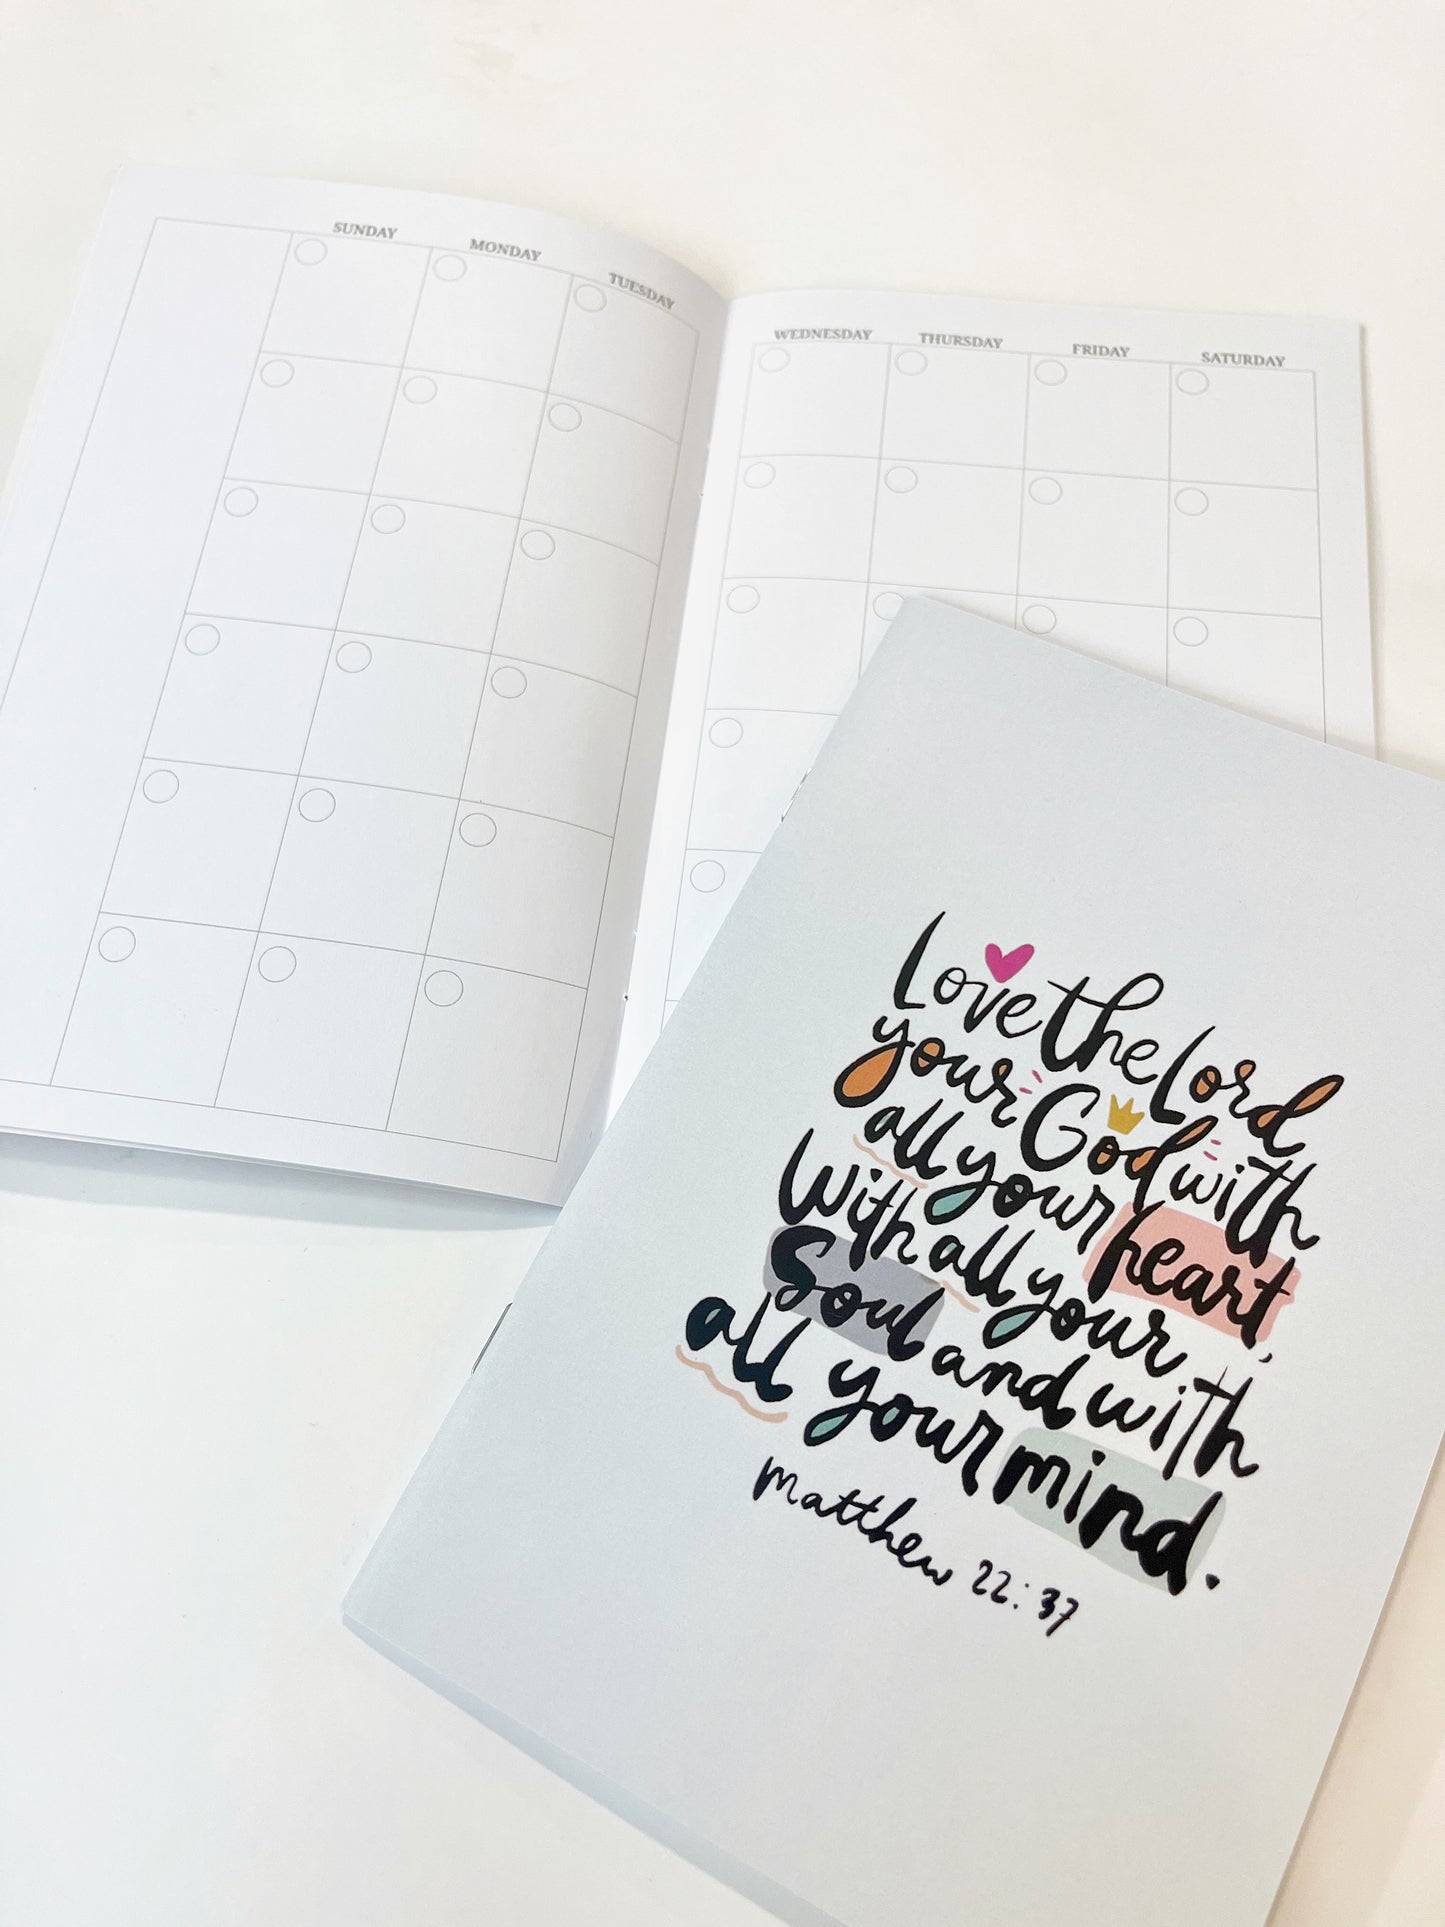 SUNDAY MONDAY TUESDAY WEDNESDAY THURSDAY FRIDAY SATURDAY
Love the Lord
your God with
all your heart,
With all your
Soul and with
all your mind.
Matthew 22:37